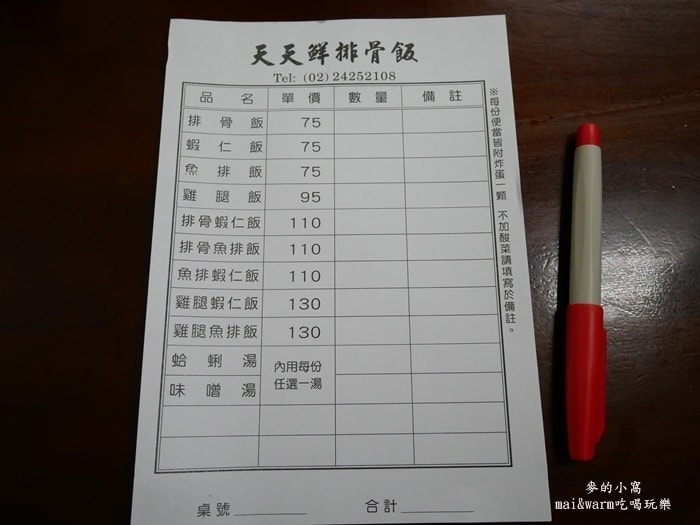 天天鮮排骨飯
Tel: (02) 24252108
品名 單價 數量 備註
排骨飯 75
蝦仁飯 75
魚排飯 75
雞腿飯 95
排骨蝦仁飯 110
排骨魚排飯 110
魚排蝦仁飯 110
雞腿蝦仁飯 130
雞腿魚排飯 130
蛤蜊湯
味噌湯
內用每份
任選一湯
※每份便當皆附炸蛋一顆 不加酸菜請填寫於備註。
桌號 合計
麥的小窩
mai&warm吃喝玩樂